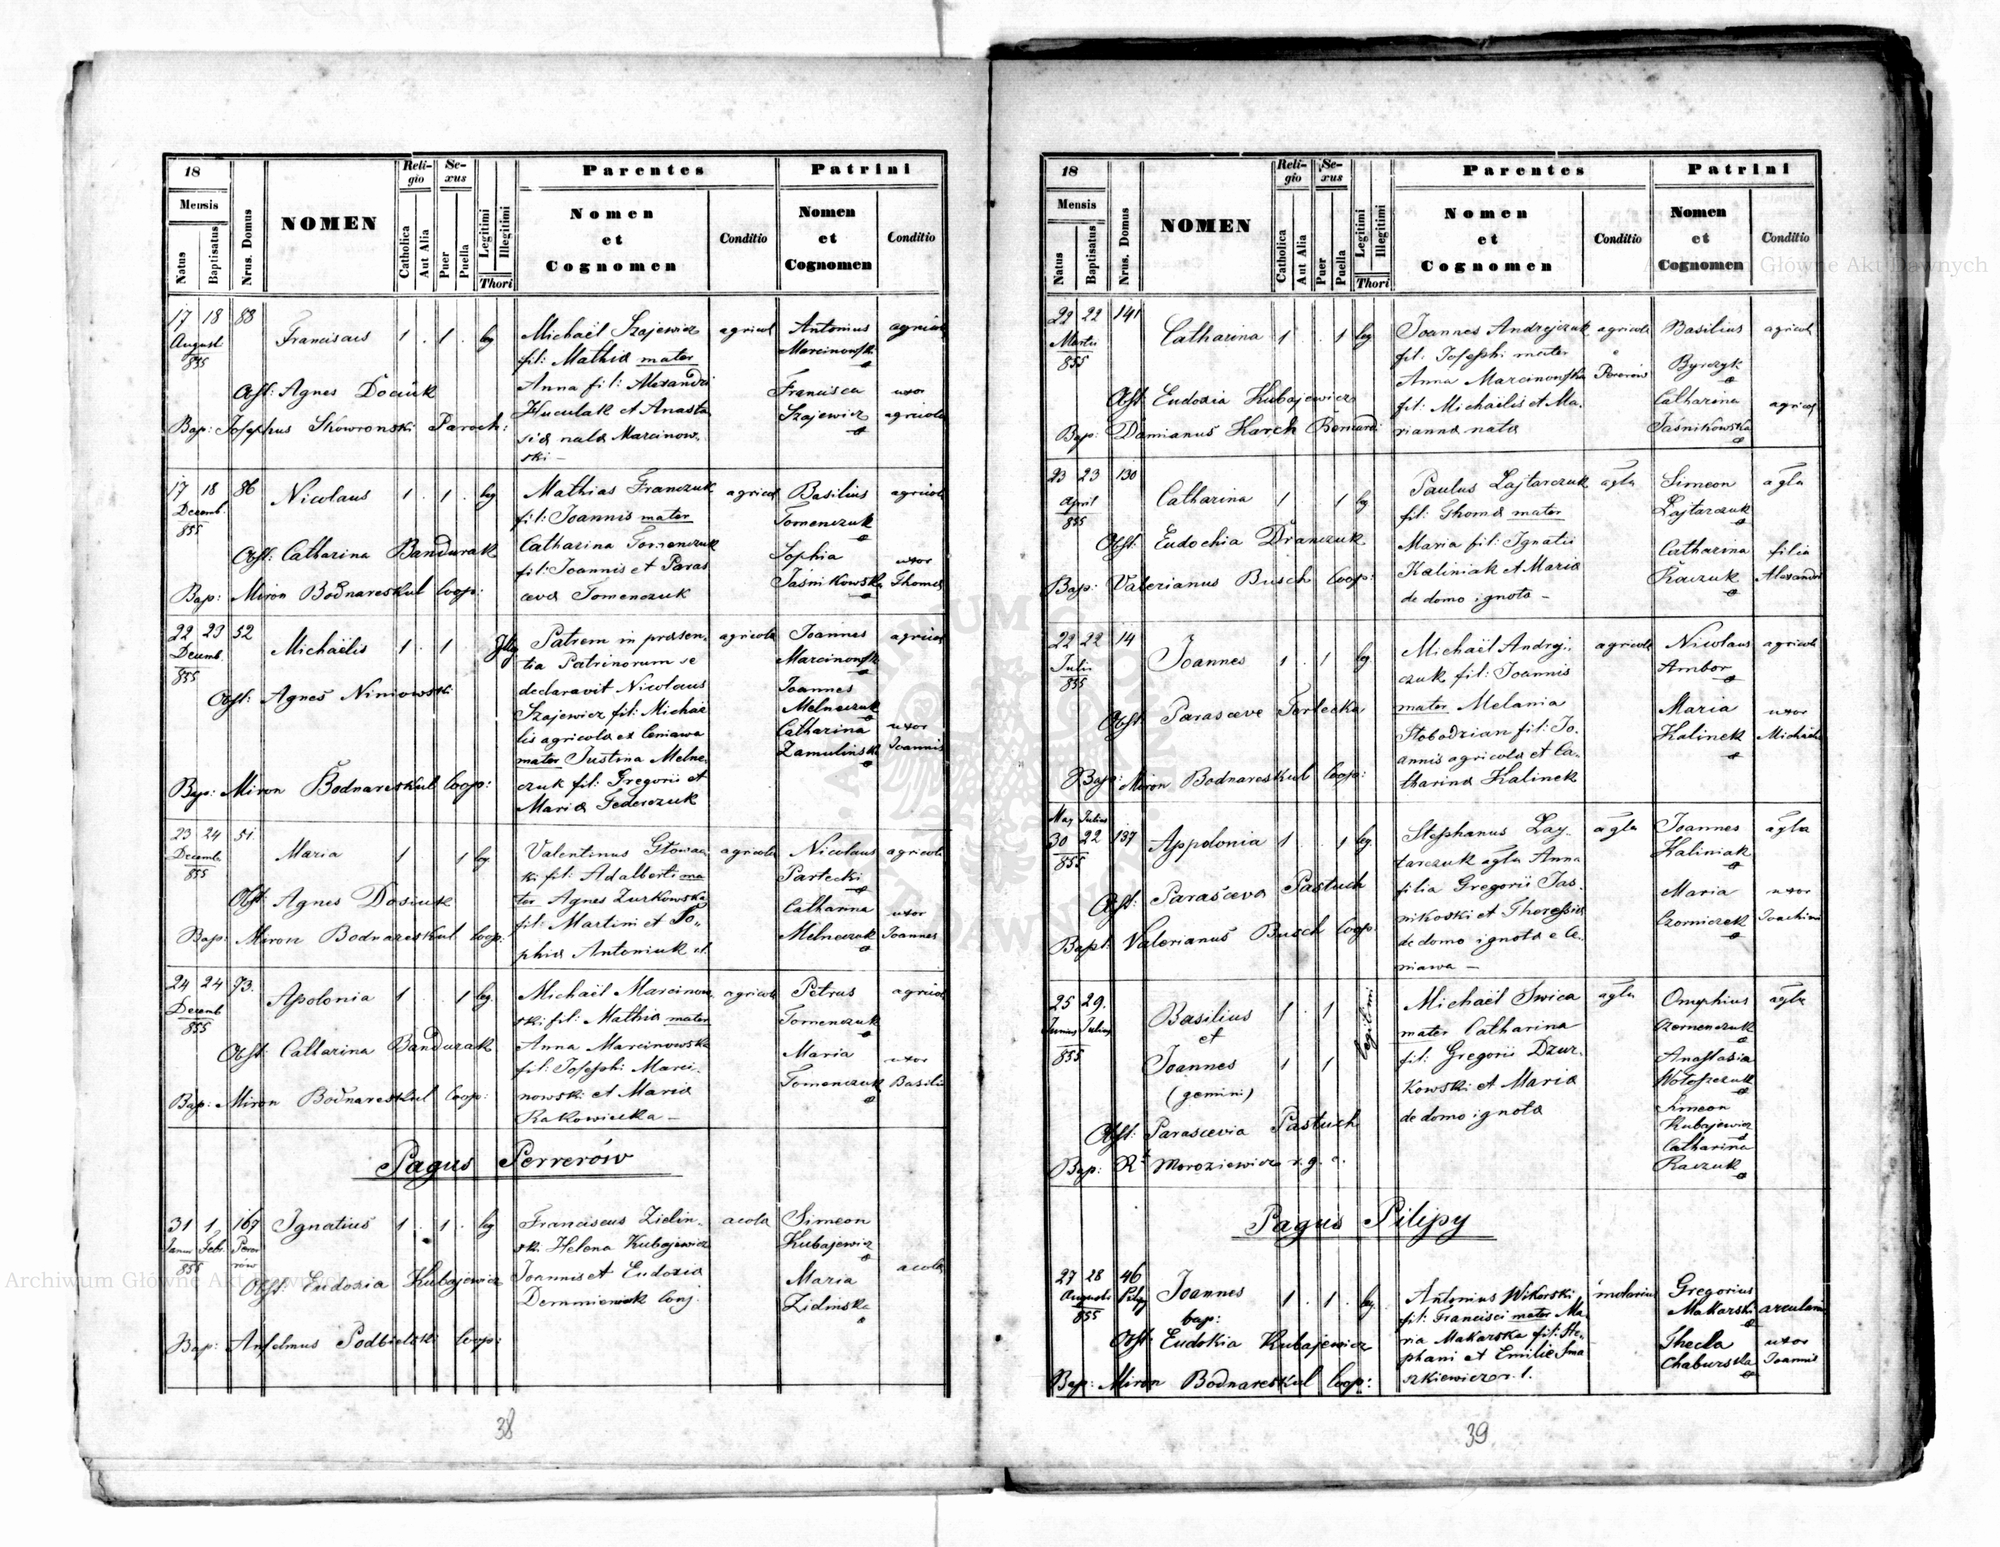 18
Religio
Sexus
Parentes
Patrini
Mensis
Natus
Baptisatus
Nrus. Domus
NOMEN
Catholica
Aut Alia
Puer
Puella
Legitimi
Illegitimi
Thori
Nomen et Cognomen
Conditio
Nomen et Cognomen
Conditio
17 18 88
August
855
Franciscus 1 . 1 . leg
Obst: Agnes Dociuk
Bap: Josephus Skowronski Paroch:
Michaël Szajewicz agricol
fil: Mathia mater
Anna fil: Alexandri
Huculak et Anasta
sia nata Marcinow-
ski —
Antonius agricol
Marcinowski
Francisca uxor
Szajewicz agricola
17 18 86
Decemb.
855
Nicolaus 1 . 1 . leg
Obst: Catharina Bandurak
Bap: Miron Bodnareskul Coop:
Mathias Franczuk agricol
fil: Joannis mater
Catharina Tomenczuk
fil: Joannis et Paras
ceva Tomenczuk
Basilius agricol
Tomenczuk
Sophia uxor
Jaśnikowska Thoma
22 23 52
Decemb.
855
Michaëlis 1 . 1 Illeg
Obst: Agnes Niniowski
Bap: Miron Bodnareskul Coop:
Patrem in præsen- agricola
tia Patrinorum se
declaravit Nicolaus
Szajewicz fil: Michaë
lis agricola ex Ceniawa
mater Justina Melne
czuk fil: Gregorii et
Maria Federczuk
Joannes agricol
Marcinowsk
Joannes
Melneczuk
Catharina uxor
Zamulinsk Joannis
23 24 51.
Decemb.
855
Maria 1 1 leg.
Obst: Agnes Dosiuk
Bap: Miron Bodnareskul Coop:
Valentinus Głowac agricola
ki fil: Adalberti ma
ter Agnes Zurkowska
fil: Martini et So-
phia Antoniuk et.
Nicolaus agricola
Partecki
Catharina uxor
Melneczuk Joannes
24 24 73.
Decemb
855
Apolonia 1 . . 1 leg.
Obst: Catharina Bandurak
Bap: Miron Bodnareskul Coop:
Michaël Marcinow agricola
ski fil: Mathia mater
Anna Marcinowska
fil: Josephi Marci-
nowski et Maria
Rakowiecka —
Petrus agricol
Tomenczuk
Maria uxor
Tomenczuk Basilii
Pagus Perrerów
31 1 167
Januar Febr. Perer
855 rów
Ignatius 1 . 1 . leg
Obst: Eudoxia Kubajewicz
Bap: Anselmus Podbielski Coop:
Franciscus Zielin- acola
sk. Helena Kubajewicz
Joannis et Eudoxia
Demmieniuk Conj.
Simeon
Kubajewicz
Maria acola
Zielinska
38
18
Religio
Sexus
Parentes
Patrini
Mensis
Natus
Baptisatus
Nrus. Domus
NOMEN
Catholica
Aut Alia
Puer
Puella
Legitimi
Illegitimi
Thori
Nomen et Cognomen
Conditio
Nomen et Cognomen
Conditio
22 22 141
Martii
855
Catharina 1 . . 1 leg
Obst: Eudoxia Kubajewicz
Bap: Damianus Harch Bernard:
Joannes Andrejczuk agricola
fil: Josephi mater
Anna Marcinowska Pererów
fil: Michaëlis et Ma-
rianna nata
Basilius agricola
Byrczyk
Catharina agricol
Jaśnikowska
23 23 130
April
855
Catharina 1 . . 1 leg
Obst: Eudochia Dranczuk
Bap: Valerianus Busch Coop:
Paulus Lajtarczuk agla
fil: Thoma mater
Maria fil: Ignatii
Kaliniak et Maria
de domo ignota —
Simeon agla
Lajtarczuk
Catharina filia
Raczuk Alexandri
22 22 14
Julii
855
Joannes 1 . 1 leg.
Obst: Parasceve Fertecka
Bap: Miron Bodnareskul Coop:
Michaël Andrej- agricola
czuk fil: Joannis
mater Melania
Słobodzian fil: Jo-
annis agricola et Ca-
tharina Kalinek
Nicolaus agricola
Ambor
Maria uxor
Kalinek Michaël
May Julius
30 22 137
855
Appolonia 1 . . 1 leg.
Obst: Parasceva Pastuch
Bapt: Valerianus Busch Coop:
Stephanus Lay- agla
tarczuk agla Anna
filia Gregorii Jas-
nikoski et Theressia
de domo ignota e Ce-
niawa —
Joannes agla
Kaliniak
Maria uxor
Czorniczek Joachimi
25 29.
Junius Julius
855
Basilius 1 . 1
et
Joannes 1 1
(gemini)
legitimi
Obst: Parascevia Pastuch
Bap: Rs Moroziewicz r. g. c.
Michaël Swica agla
mater Catharina
fil: Gregorii Dzur-
kowski et Maria
de domo ignota
Onuphius agla
Czemenczuk
Anastasia
Wołoszczuk
Simeon
Kubajewicz
Catharina
Raczuk
Pagus Pilipy
27 28 46
Augusti Pilipy
855
Joannes 1 . 1 . leg.
bap:
Obst: Eudokia Kubajewicz
Bap: Miron Bodnareskul Coop:
Antonius Wikarski molarius
fil: Francisci mater Ma-
ria Makarska fil: Ste-
phani et Emilie Sma
szkiewicz r. l.
Gregorius
Makarski arcularius
Thecla uxor
Chaburska Joannis
39
Archiwum Główne Akt Dawnych
Archiwum Główne Akt Dawnych